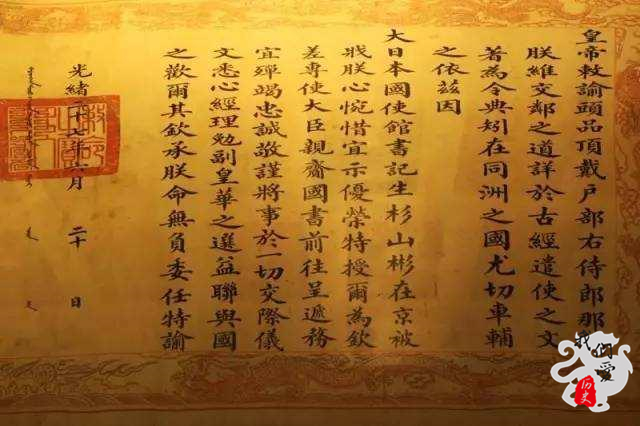 皇帝敕諭頭品頂戴戶部右侍郎那
朕維交鄰之道詳於古經遣使之文
著為令典矧在同洲之國尤切車輔
之依茲因
大日本國使館書記生杉山彬在京被
戕朕心惋惜宜示優榮特授爾為欽
差專使大臣親齎國書前往呈遞務
宜殫竭忠誠敬謹將事於一切交際儀
文悉心經理勉副皇華之選益聯與國
之歡爾其欽承朕命無負委任特諭
光緒二十七年六月 二十 日
我們愛
历史